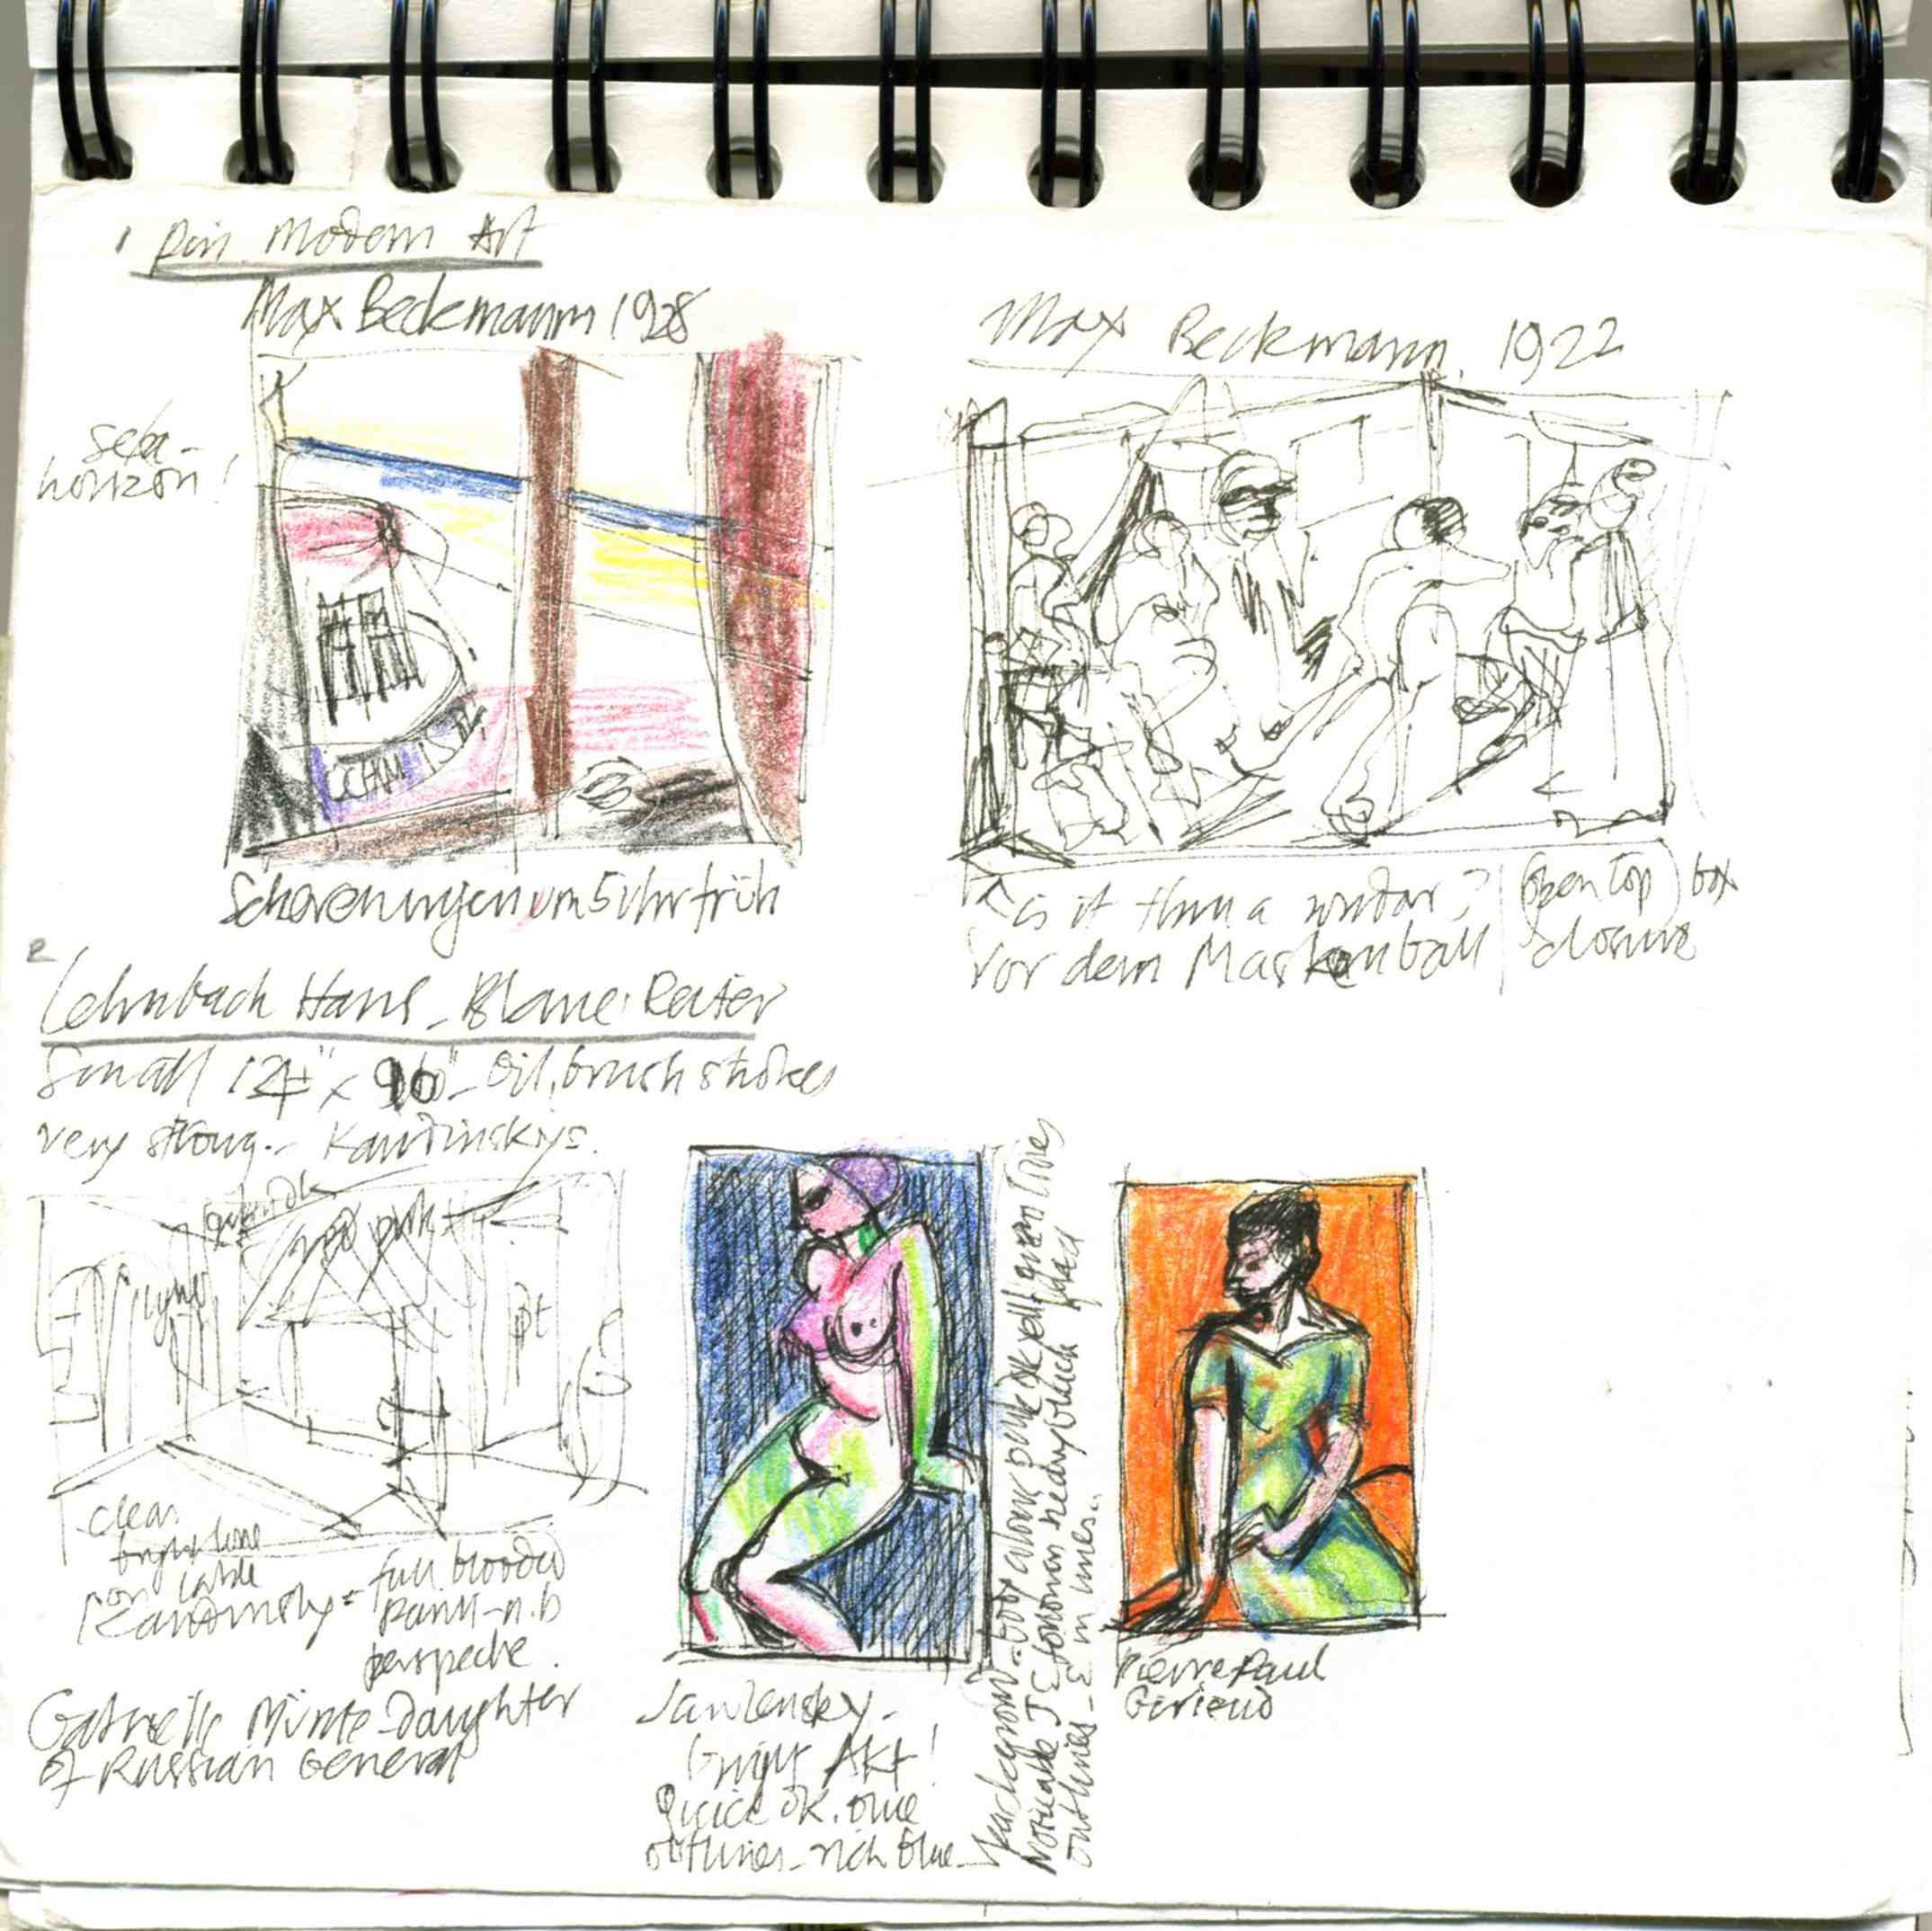 1 Pin Modern Art
Max Beckmann 1928
sea-
horizon!
Scheveningen um 5 uhr früh
Max Beckmann, 1922
is it thru a window?
Vor dem Maskenball
open top box
closure
2
Lehnbach Haus - Blaue Reiter
Small 12" x 9" - Oil, brush strokes
very strong - Kandinskys.
red pink
clear
bright line
on table
Kandinsky = full blooded
paint - n.b
perspective.
Gabrielle Münte - Daughter
of Russian General
Jawlensky -
Akt!
quick dk. blue
outlines - rich blue
background - body colour pink dk yell green lines
Noticable J & heavy black
outlines - & in lines..
Pierre Paul
Girieud